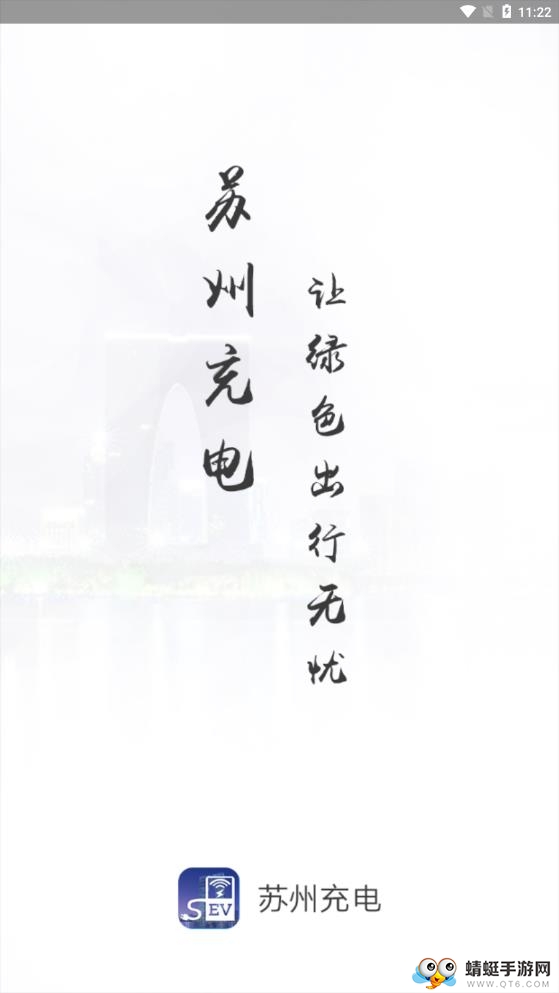 11:22
苏州充电
让绿色出行无忧
SEV
苏州充电
蜻蜓手游网
WWW.QT6.COM